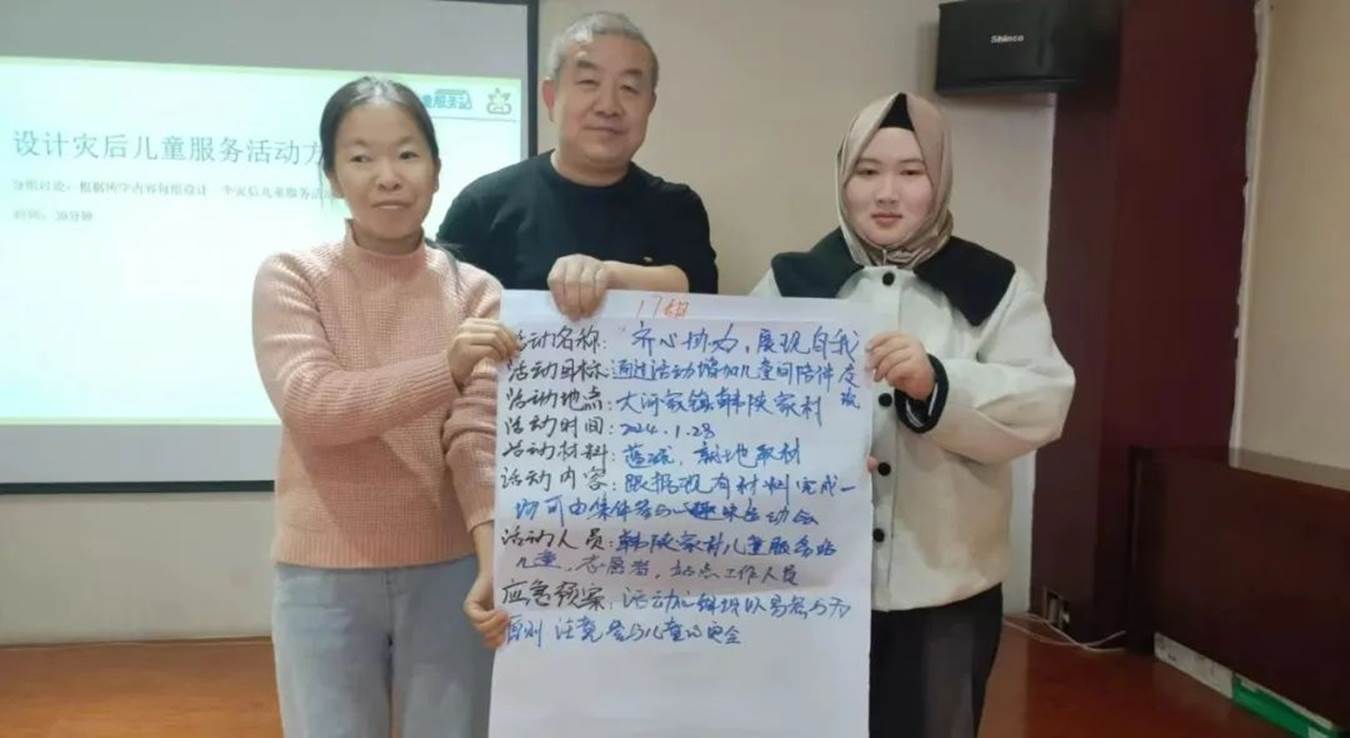 童服务站
设计灾后儿童服务活动方
分组讨论：根据所学内容每组设计一个灾后儿童服务活
时间：30分钟
Shinco
17组
活动名称："齐心协力，展现自我
活动目标：通过活动增加儿童间陪伴度
活动地点：大河家镇韩陕家村
活动时间：2024.1.28
活动材料：篮球，就地取材
活动内容：跟据现有材料完成一
场可由集体参与心趣味运动会
活动人员：韩陕家村儿童服务站
儿童，志愿者，站点工作人员
应急预案：活动以易参与为
原则 注意参与儿童的安全